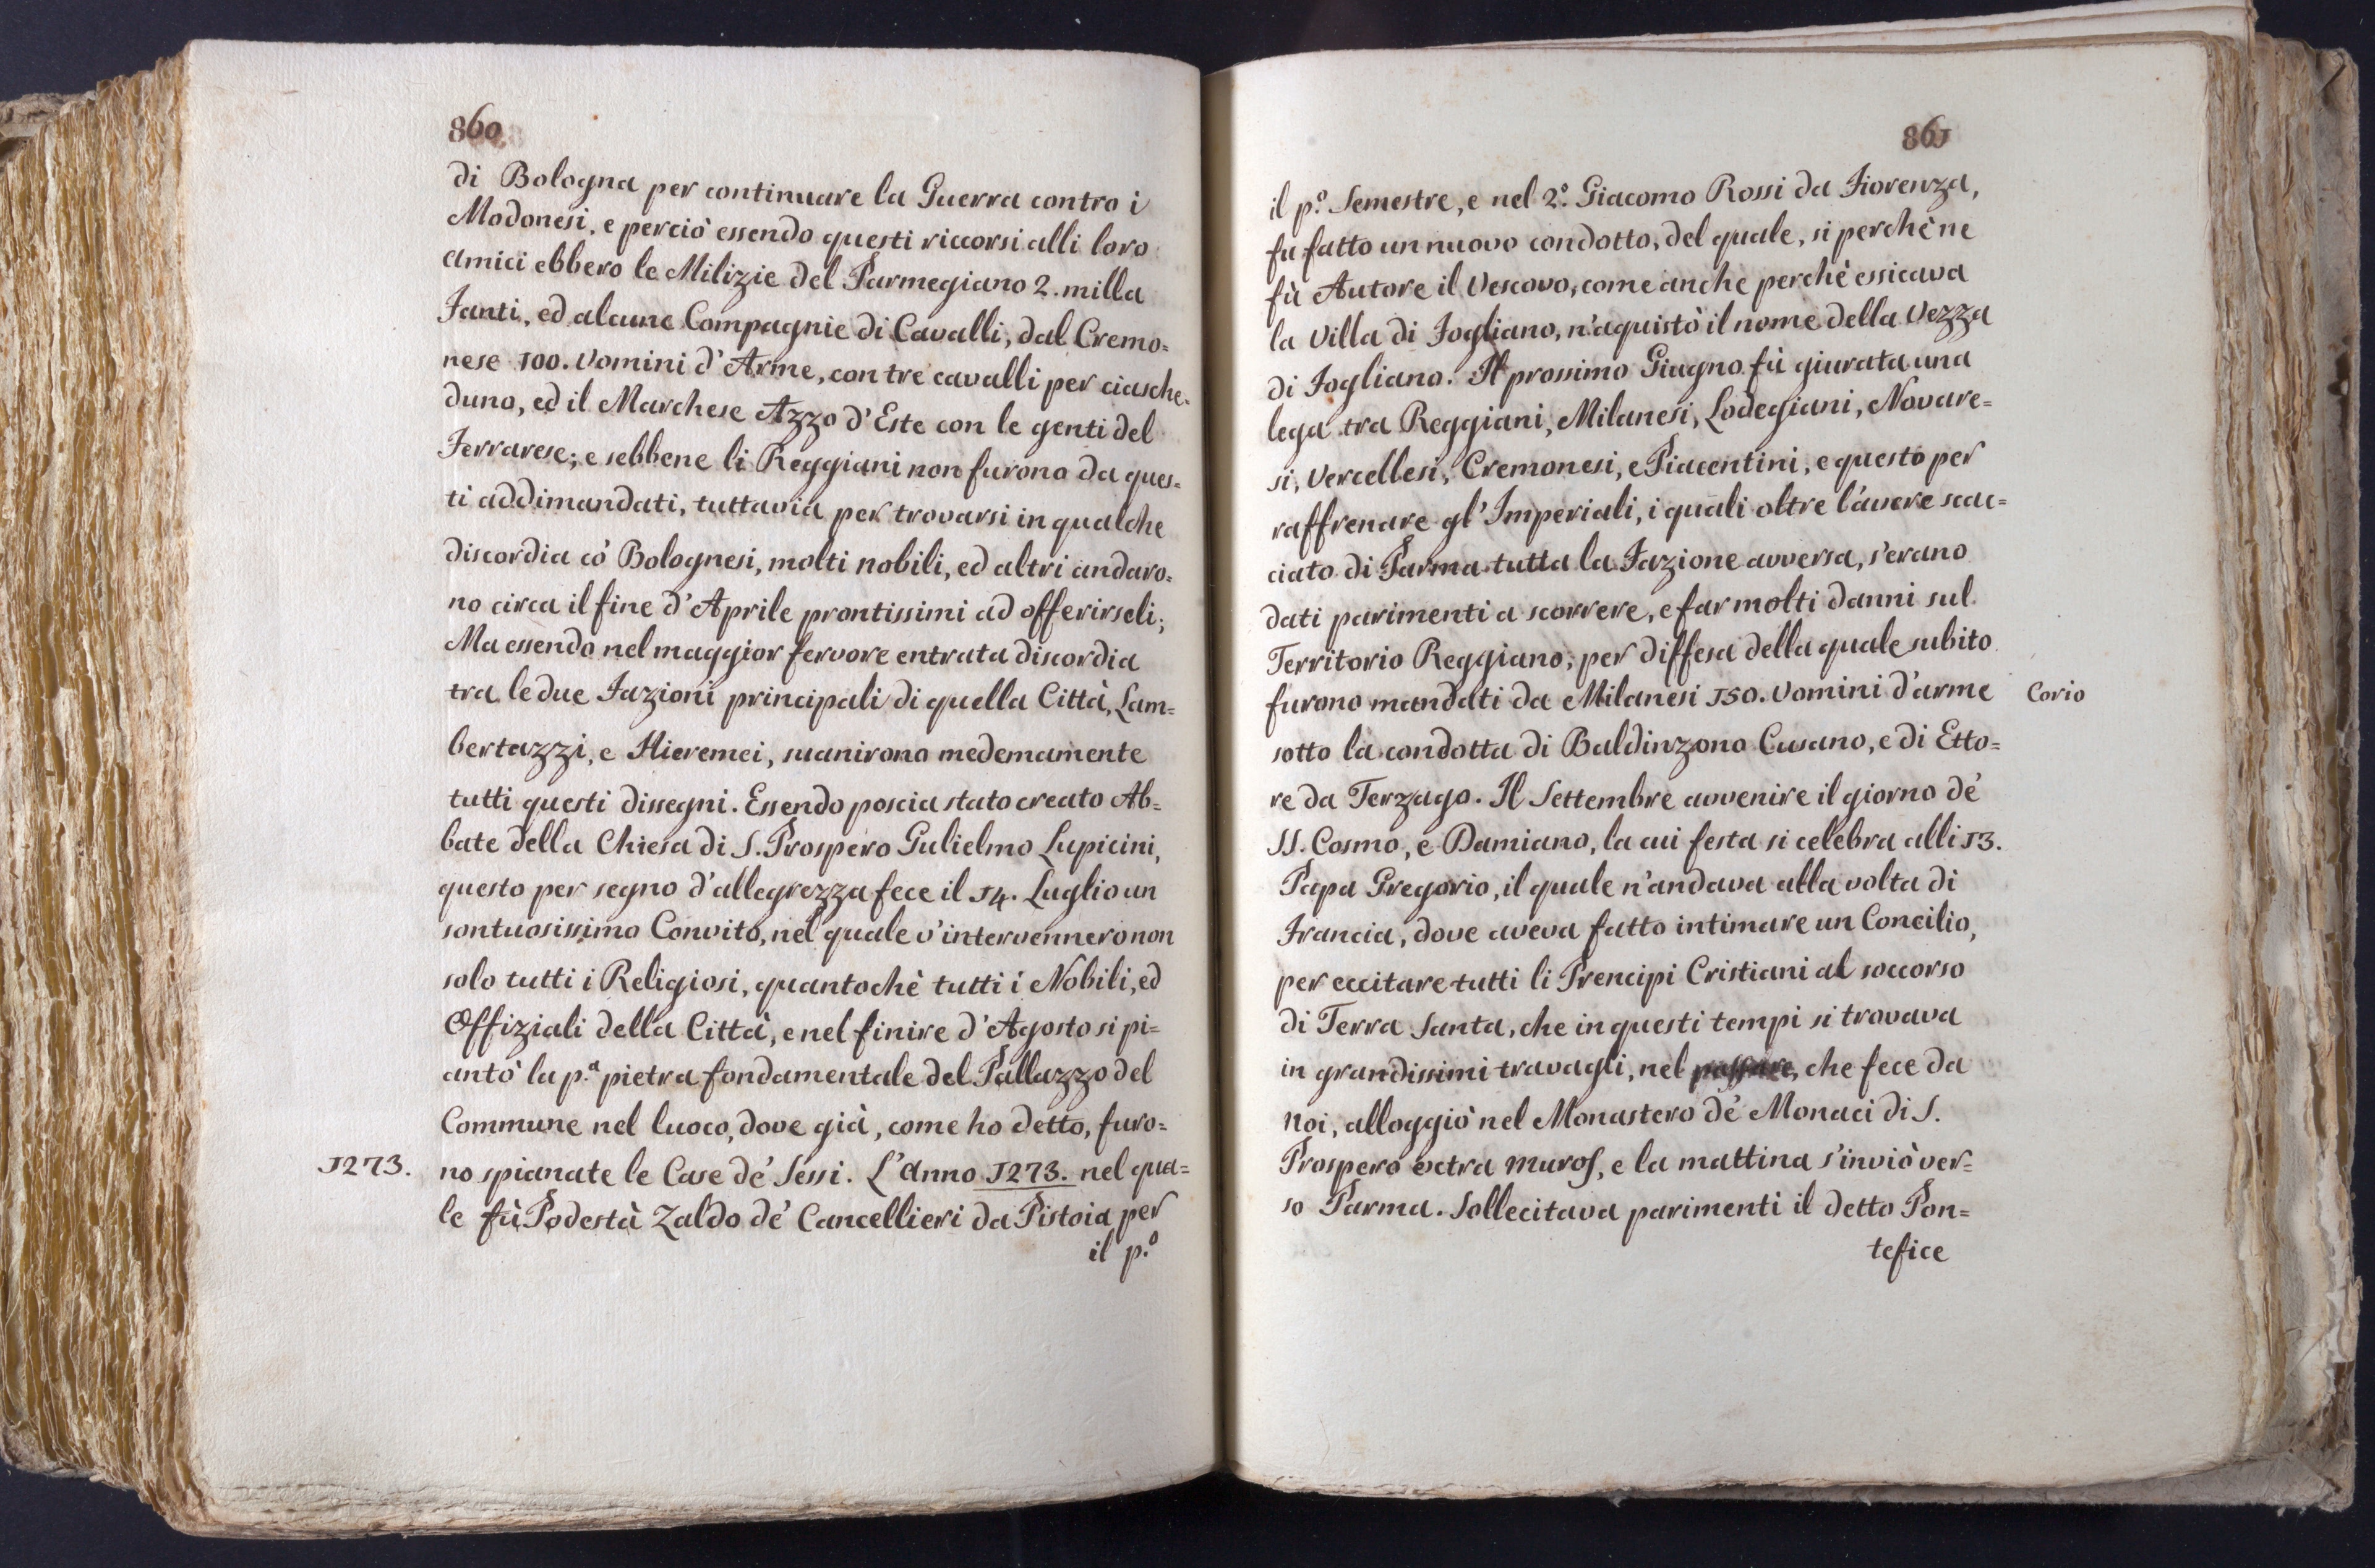 860
di Bologna per continuare la Guerra contro i
Modonesi, e perciò essendo questi riccorsi alli loro
Amici ebbero le Milizie del Parmegiano 2. milla
Fanti, ed alcune Compagnie di Cavalli, dal Cremo=
nese 100. Uomini d'Arme, con tre cavalli per ciasche=
duno, ed il Marchese Azzo d'Este con le genti del
Ferrarese; e sebbene li Reggiani non furono da ques=
ti addimandati, tuttavia per trovarsi in qualche
discordia co' Bolognesi, molti nobili, ed altri andaro=
no circa il fine d'Aprile prontissimi ad offerirseli;
Ma essendo nel maggior fervore entrata discordia
tra le due Fazioni principali di quella Città, Lam=
bertazzi, e Hieremei, suanirono medemamente
tutti questi dissegni. Essendo poscia stato creato Ab=
bate della Chiesa di S. Prospero Gulielmo Lupicini,
questo per segno d'allegrezza fece il 14. Luglio un
sontuosissimo Convito, nel quale v'intervennero non
solo tutti i Religiosi, quantochè tutti i Nobili, ed
Offiziali della Città, e nel finire d'Agosto si pi=
antò la p.ª pietra fondamentale del Pallazzo del
Commune nel luoco, dove già, come ho detto, furo=
1273. no spianate le Case de' Sessi. L'Anno 1273. nel qua=
le fù Podestà Zaldo de' Cancellieri da Pistoia per
il p.º
861
il p.º Semestre, e nel 2.º Giacomo Rossi da Fiorenza,
fu fatto un nuovo condotto, del quale, si perchè ne
fù Autore il Vescovo, come anche perchè essicava
la Villa di Fogliano, n'aquistò il nome della Vezza
di Fogliano. Il prossimo Giugno fù giurata una
lega tra Reggiani, Milanesi, Lodegiani, Novare=
si, Vercellesi, Cremonesi, e Piacentini, e questo per
raffrenare gl'Imperiali, i quali oltre l'avere scac=
ciato di Parma tutta la Fazione avversa, s'erano
dati parimenti a scorrere, e far molti danni sul
Territorio Reggiano, per diffesa della quale subito
furono mandati da Milanesi 150. Uomini d'arme Corio
sotto la condotta di Baldinzono Cusano, e di Etto=
re da Terzago. Il Settembre avvenire il giorno de'
SS. Cosmo, e Damiano, la cui festa si celebra alli 13.
Papa Gregorio, il quale n'andava alla volta di
Francia, dove aveva fatto intimare un Concilio,
per eccitare tutti li Prencipi Cristiani al soccorso
di Terra Santa, che in questi tempi si trovava
in grandissimi travagli, nel passare, che fece da
noi, alloggiò nel Monastero de' Monaci di S.
Prospero extra muros, e la mattina s'inviò ver=
so Parma. Sollecitava parimenti il detto Pon=
tefice